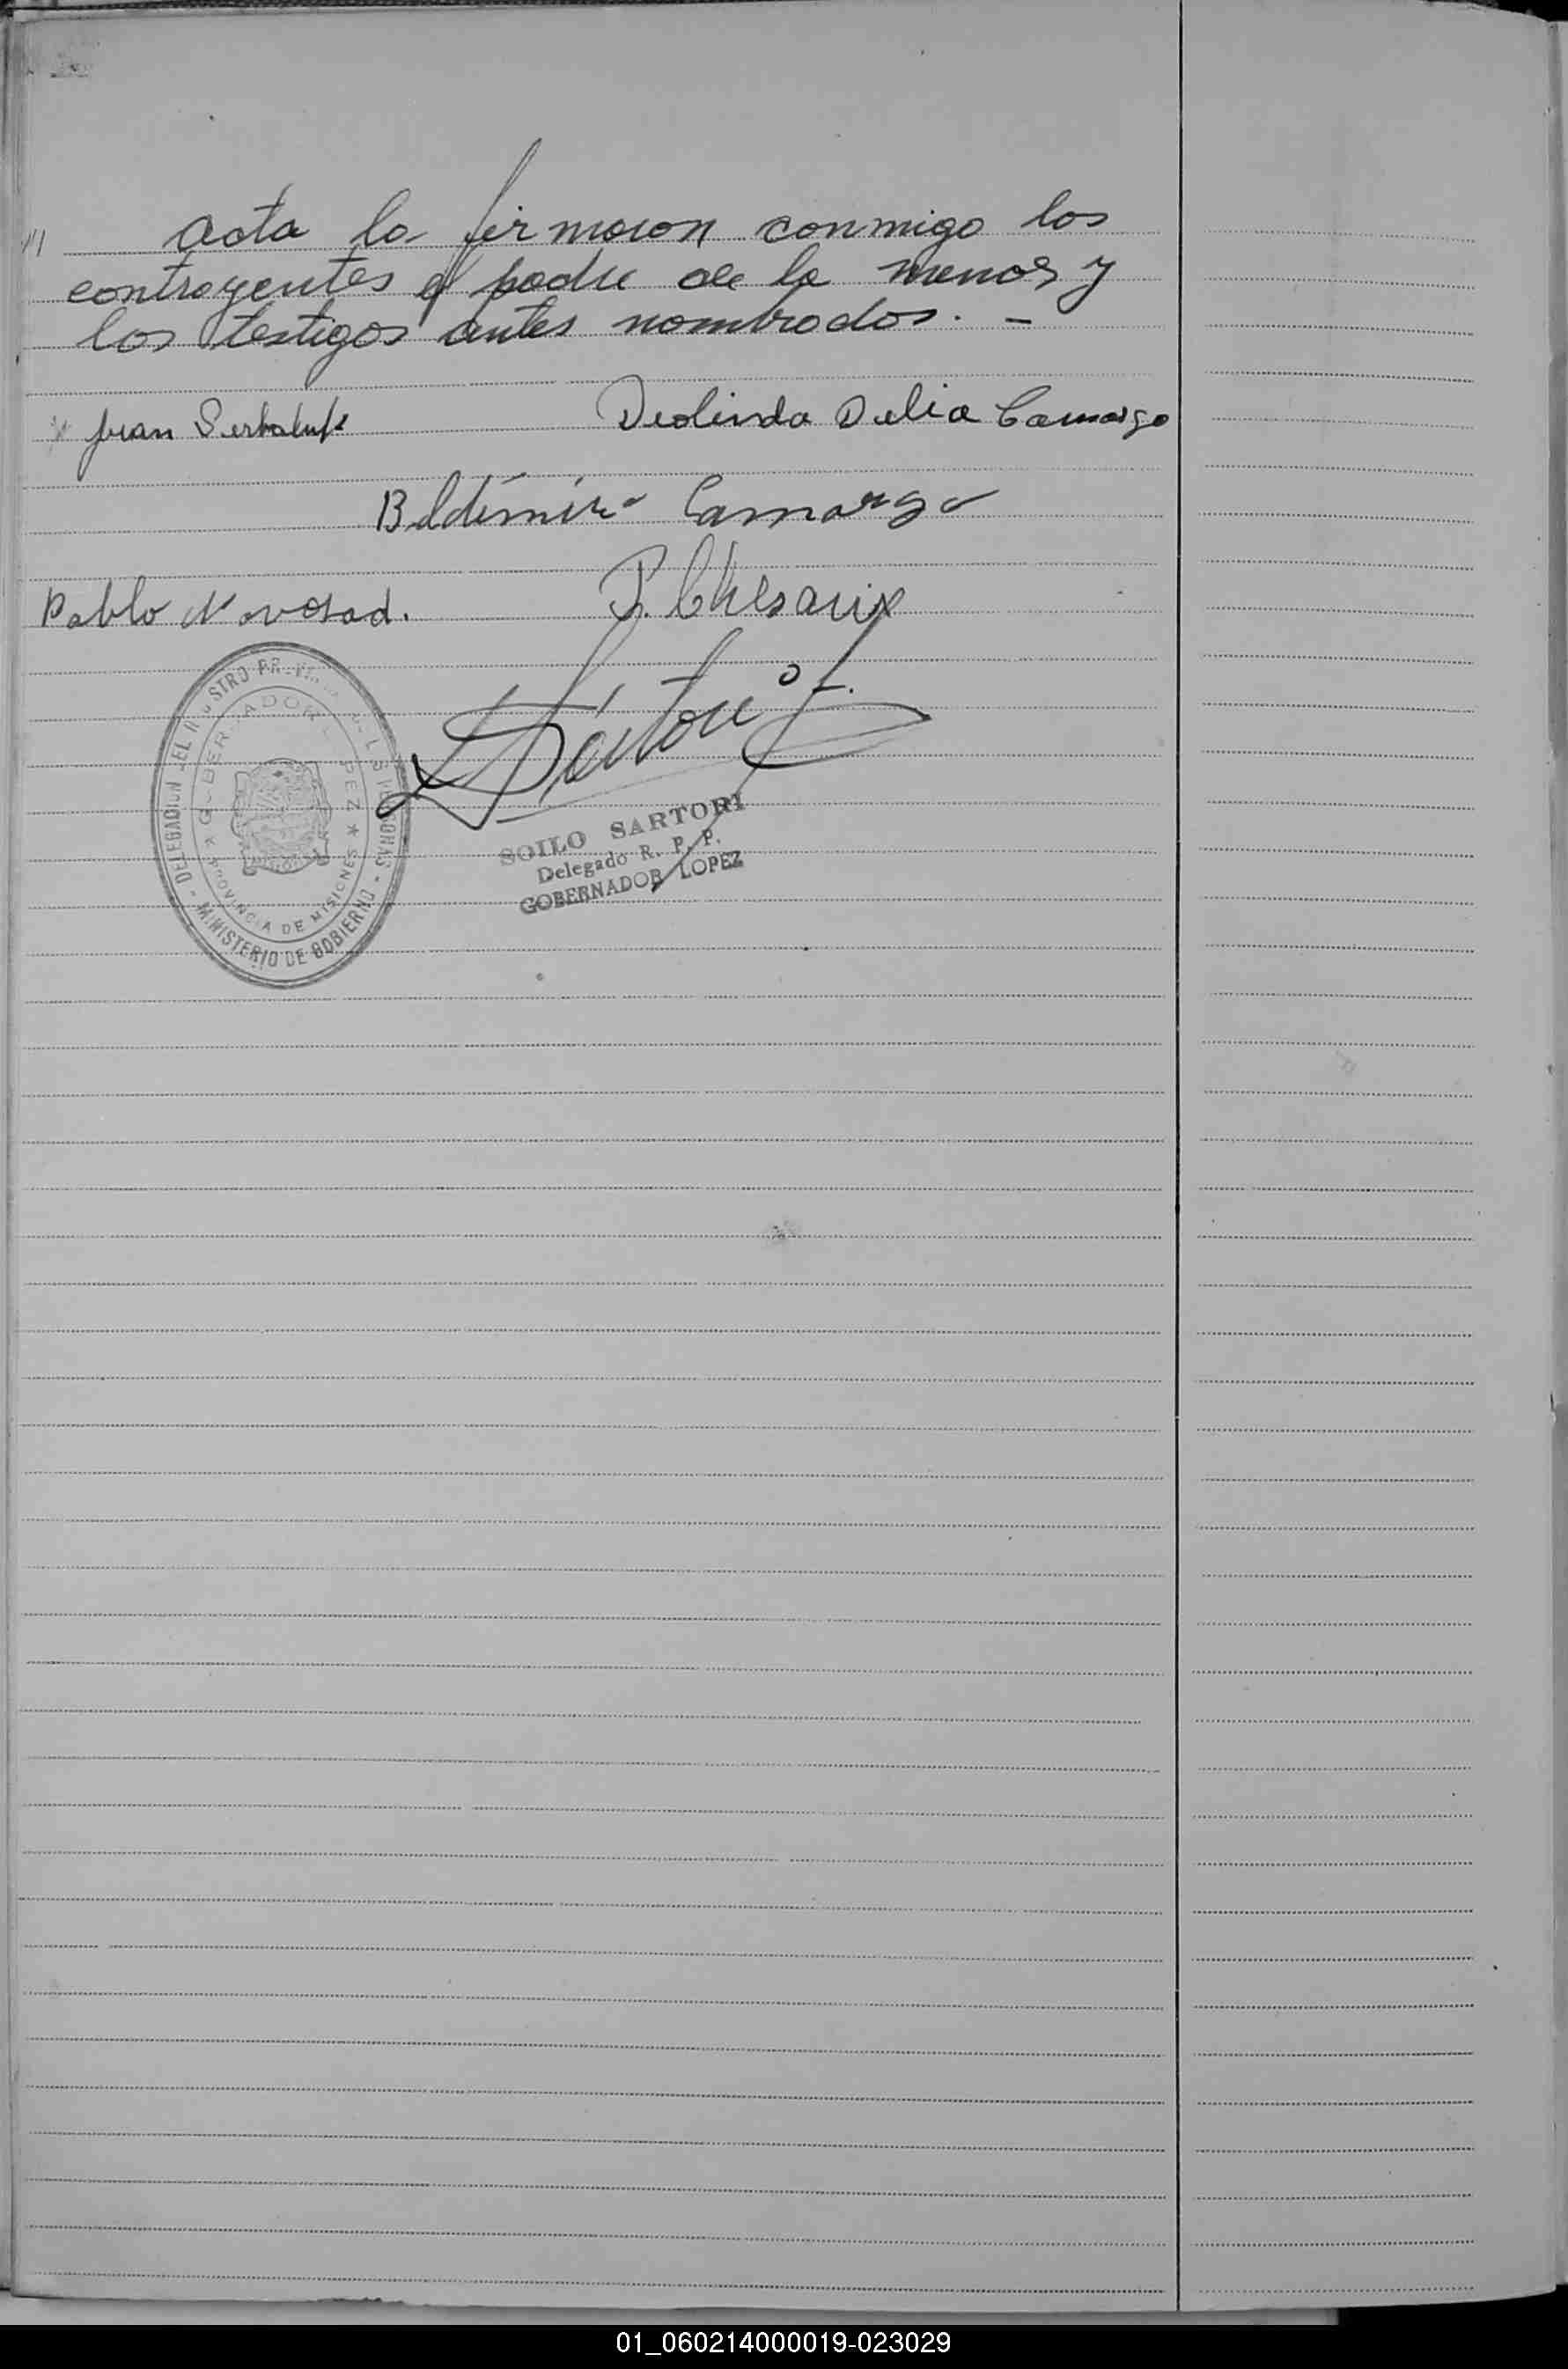 /// acta la firmaron conmigo los
contrayentes el padre de la menor y
los testigos antes nombrados. -
Juan Deolinda Delia Camargo
Camargo
Pablo Novosad. P.
Sartori
DELEGACION DEL REGISTRO PROVINCIAL DE LAS PERSONAS - MINISTERIO DE GOBIERNO -
GOBERNADOR LOPEZ * PROVINCIA DE MISIONES *
SOILO SARTORI
Delegado R. P. P.
GOBERNADOR LOPEZ
01_060214000019-023029